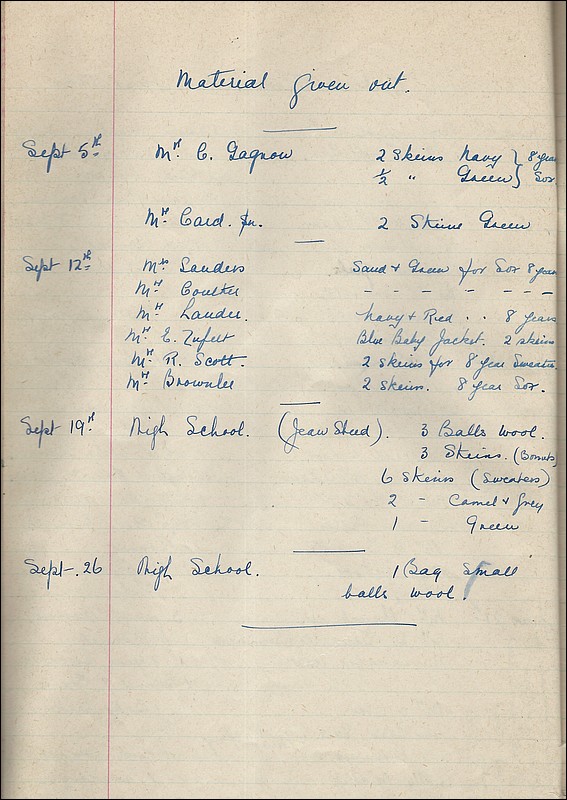 Material given out.
Sept 5th Mrs C. Gagnon 2 Skeins Navy } 8 year
1/2 " Green } Sox
Mrs Card. Jr. 2 Skeins Green
Sept 12th Mrs Sanders Sand & Green for Sox 8 years
Mrs Coulter - - - - - - -
Mrs Lauder. Navy & Red . . 8 years
Mrs E. Zufelt Blue Baby Jacket. 2 skeins
Mrs R. Scott. 2 skeins for 8 year Sweater.
Mrs Brownlee 2 skeins. 8 year Sox.
Sept 19th High School. (Jean Steed). 3 Balls wool.
3 Skeins. (Bonnets)
6 Skeins (Sweaters)
2 - Camel & Grey
1 - Green
Sept. 26 High School. 1 Bag Small
balls wool.